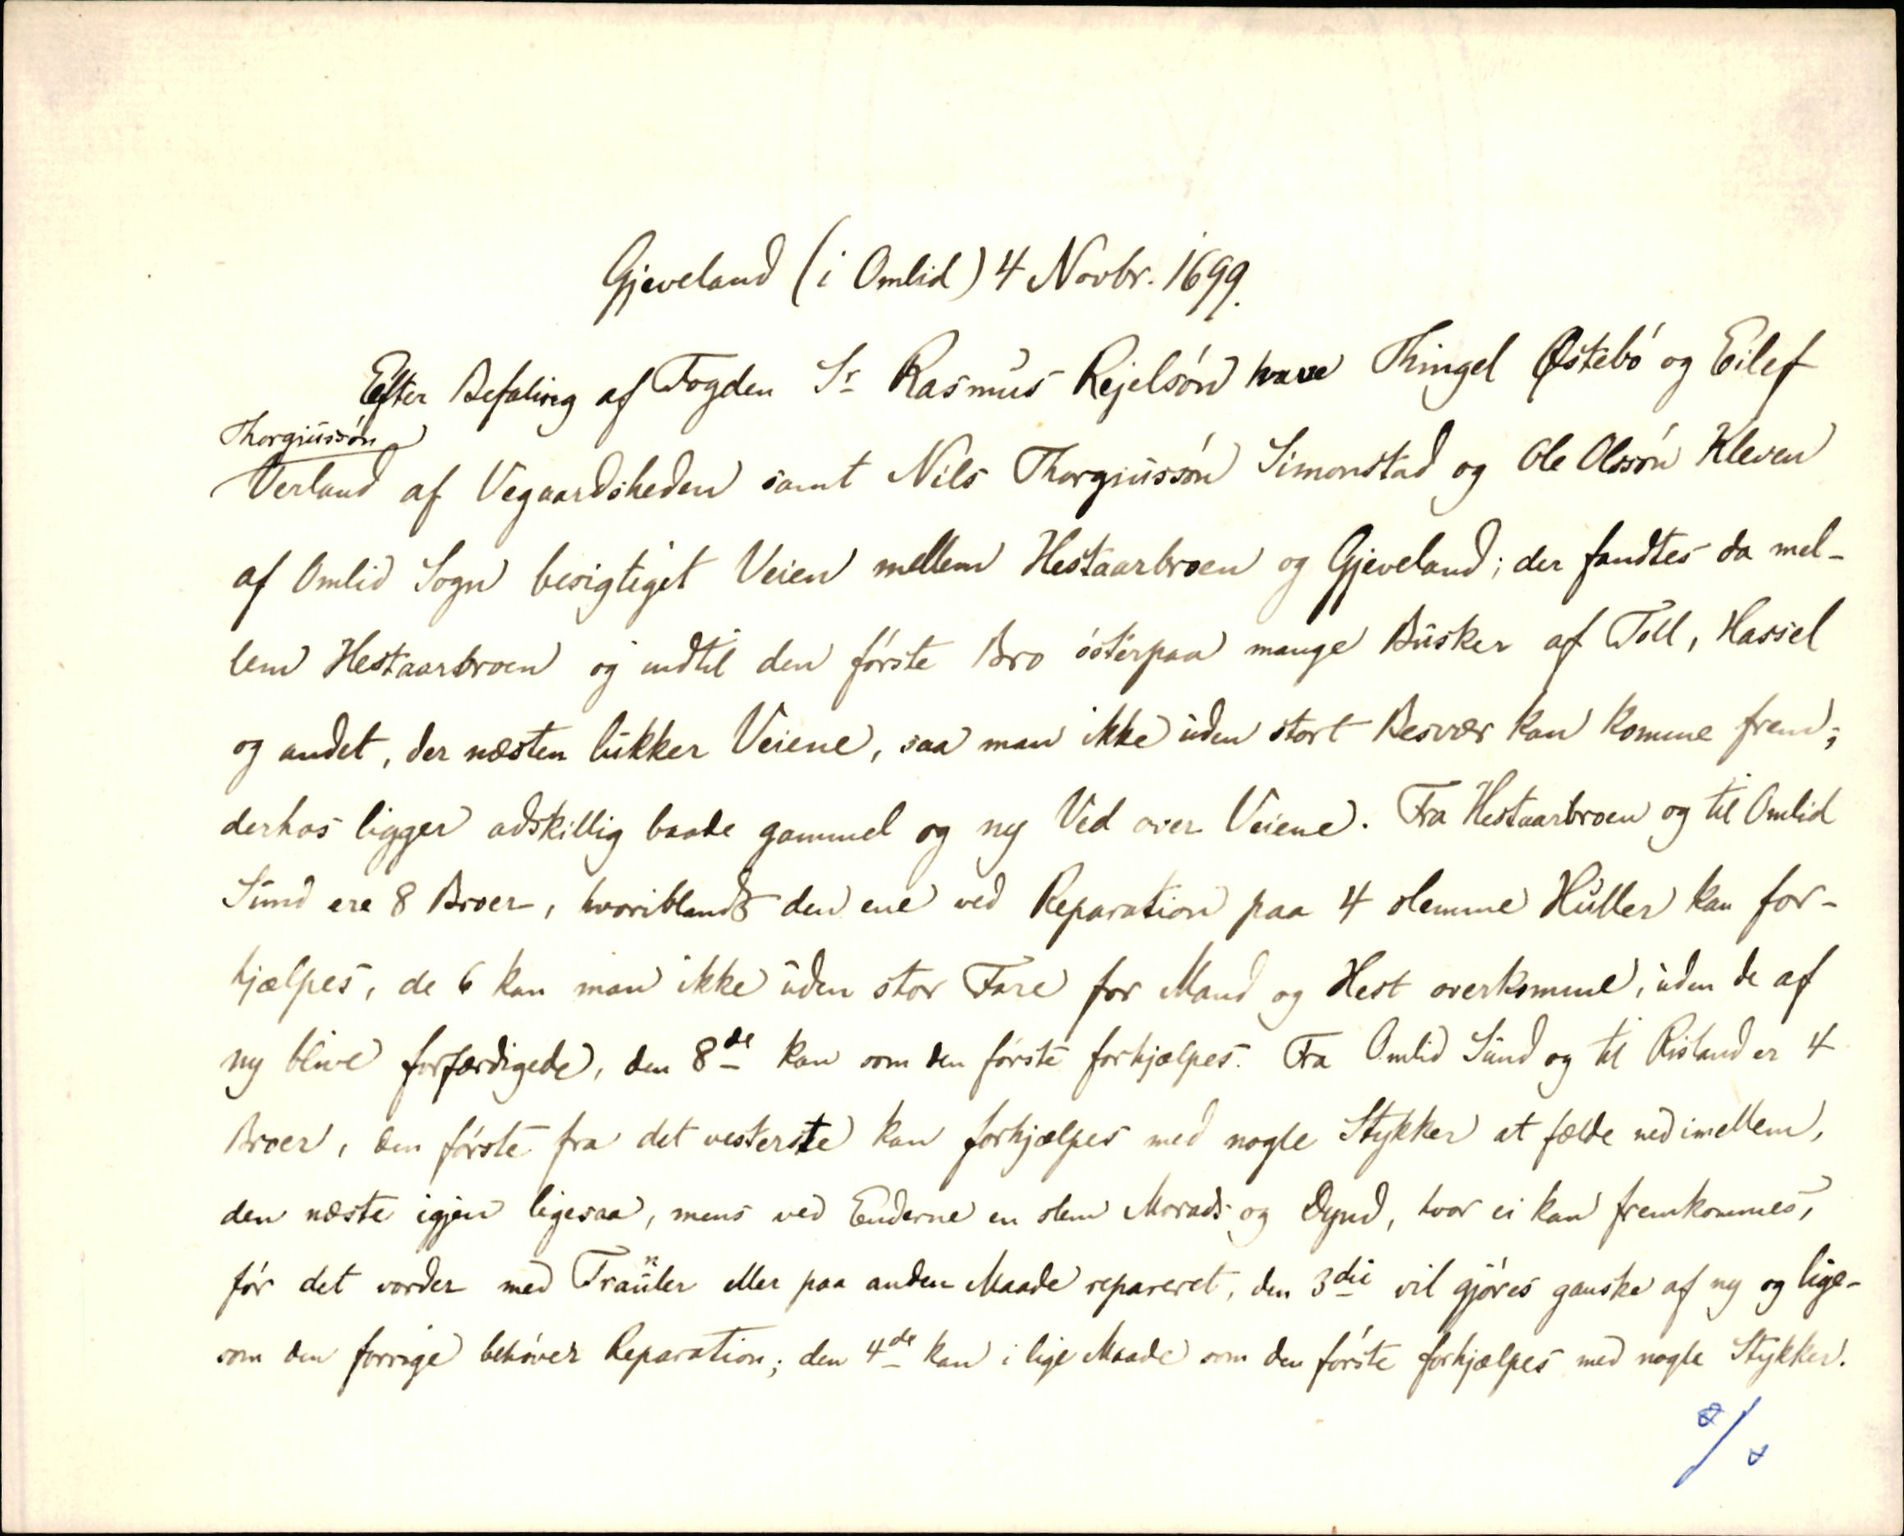 Gjeveland (i Omlid) 4 Novbr. 1699.
Efter Befaling af Fogden Sr Rasmus Rejelsön have Thingel Østebö og Eilef
Thorgiussön
Verland af Vegaardsheden samt Nils Thorgiussön Simonstad og Ole Olssön Kleven
af Omlid Sogn besigtiget Veien mellem Hestaarbroen og Gjeveland; der fandtes da mel-
lem Hestaarbroen og indtil den förste Bro österpaa mange Busker af Toll, Hassel
og andet, der næsten lukker Veiene, saa man ikke uden stort Besvær kan komme frem;
derhos ligger adskillig baade gammel og ny Ved over Veiene. Fra Hestaarbroen og til Omlid
Sund ere 8 Broer, hvoriblandt den ene ved Reparation paa 4 slemme Huller kan for-
hjælpes, de 6 kan man ikke uden stor Fare for Mand og Hest overkomme, uden de af
ny blive forfærdigede, den 8de kan som den förste forhjælpes. Fra Omlid Sund og til Risland er 4
Broer, den förste fra det vesterste kan forhjælpes med nogle Stykker at fælde ned imellem,
den næste igjen ligesaa, mens ved Enderne en slem Morads og Dynd, hvor ei kan fremkommes,
för det vorder med eller paa anden Maade repareret, den 3die vil gjöres ganske af ny og lige-
som den forrige behöver Reparation; den 4de kan i lige Maade som den förste forhjælpes med nogle Stykker.